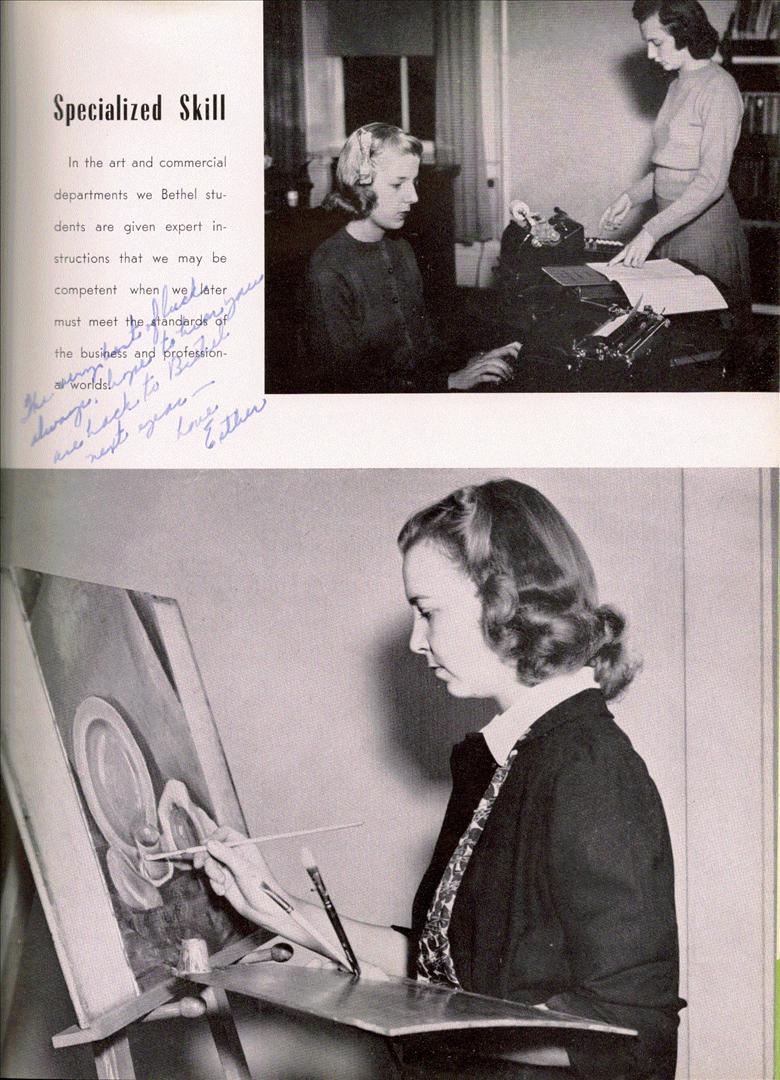 Specialized Skill
In the art and commercial
departments we Bethel stu-
dents are given expert in-
structions that we may be
competent when we later
must meet the standards of
the business and profession-
al worlds.
The very best of luck
always, hopes to hear you
are back to Bethel
next year —
Love
Esther